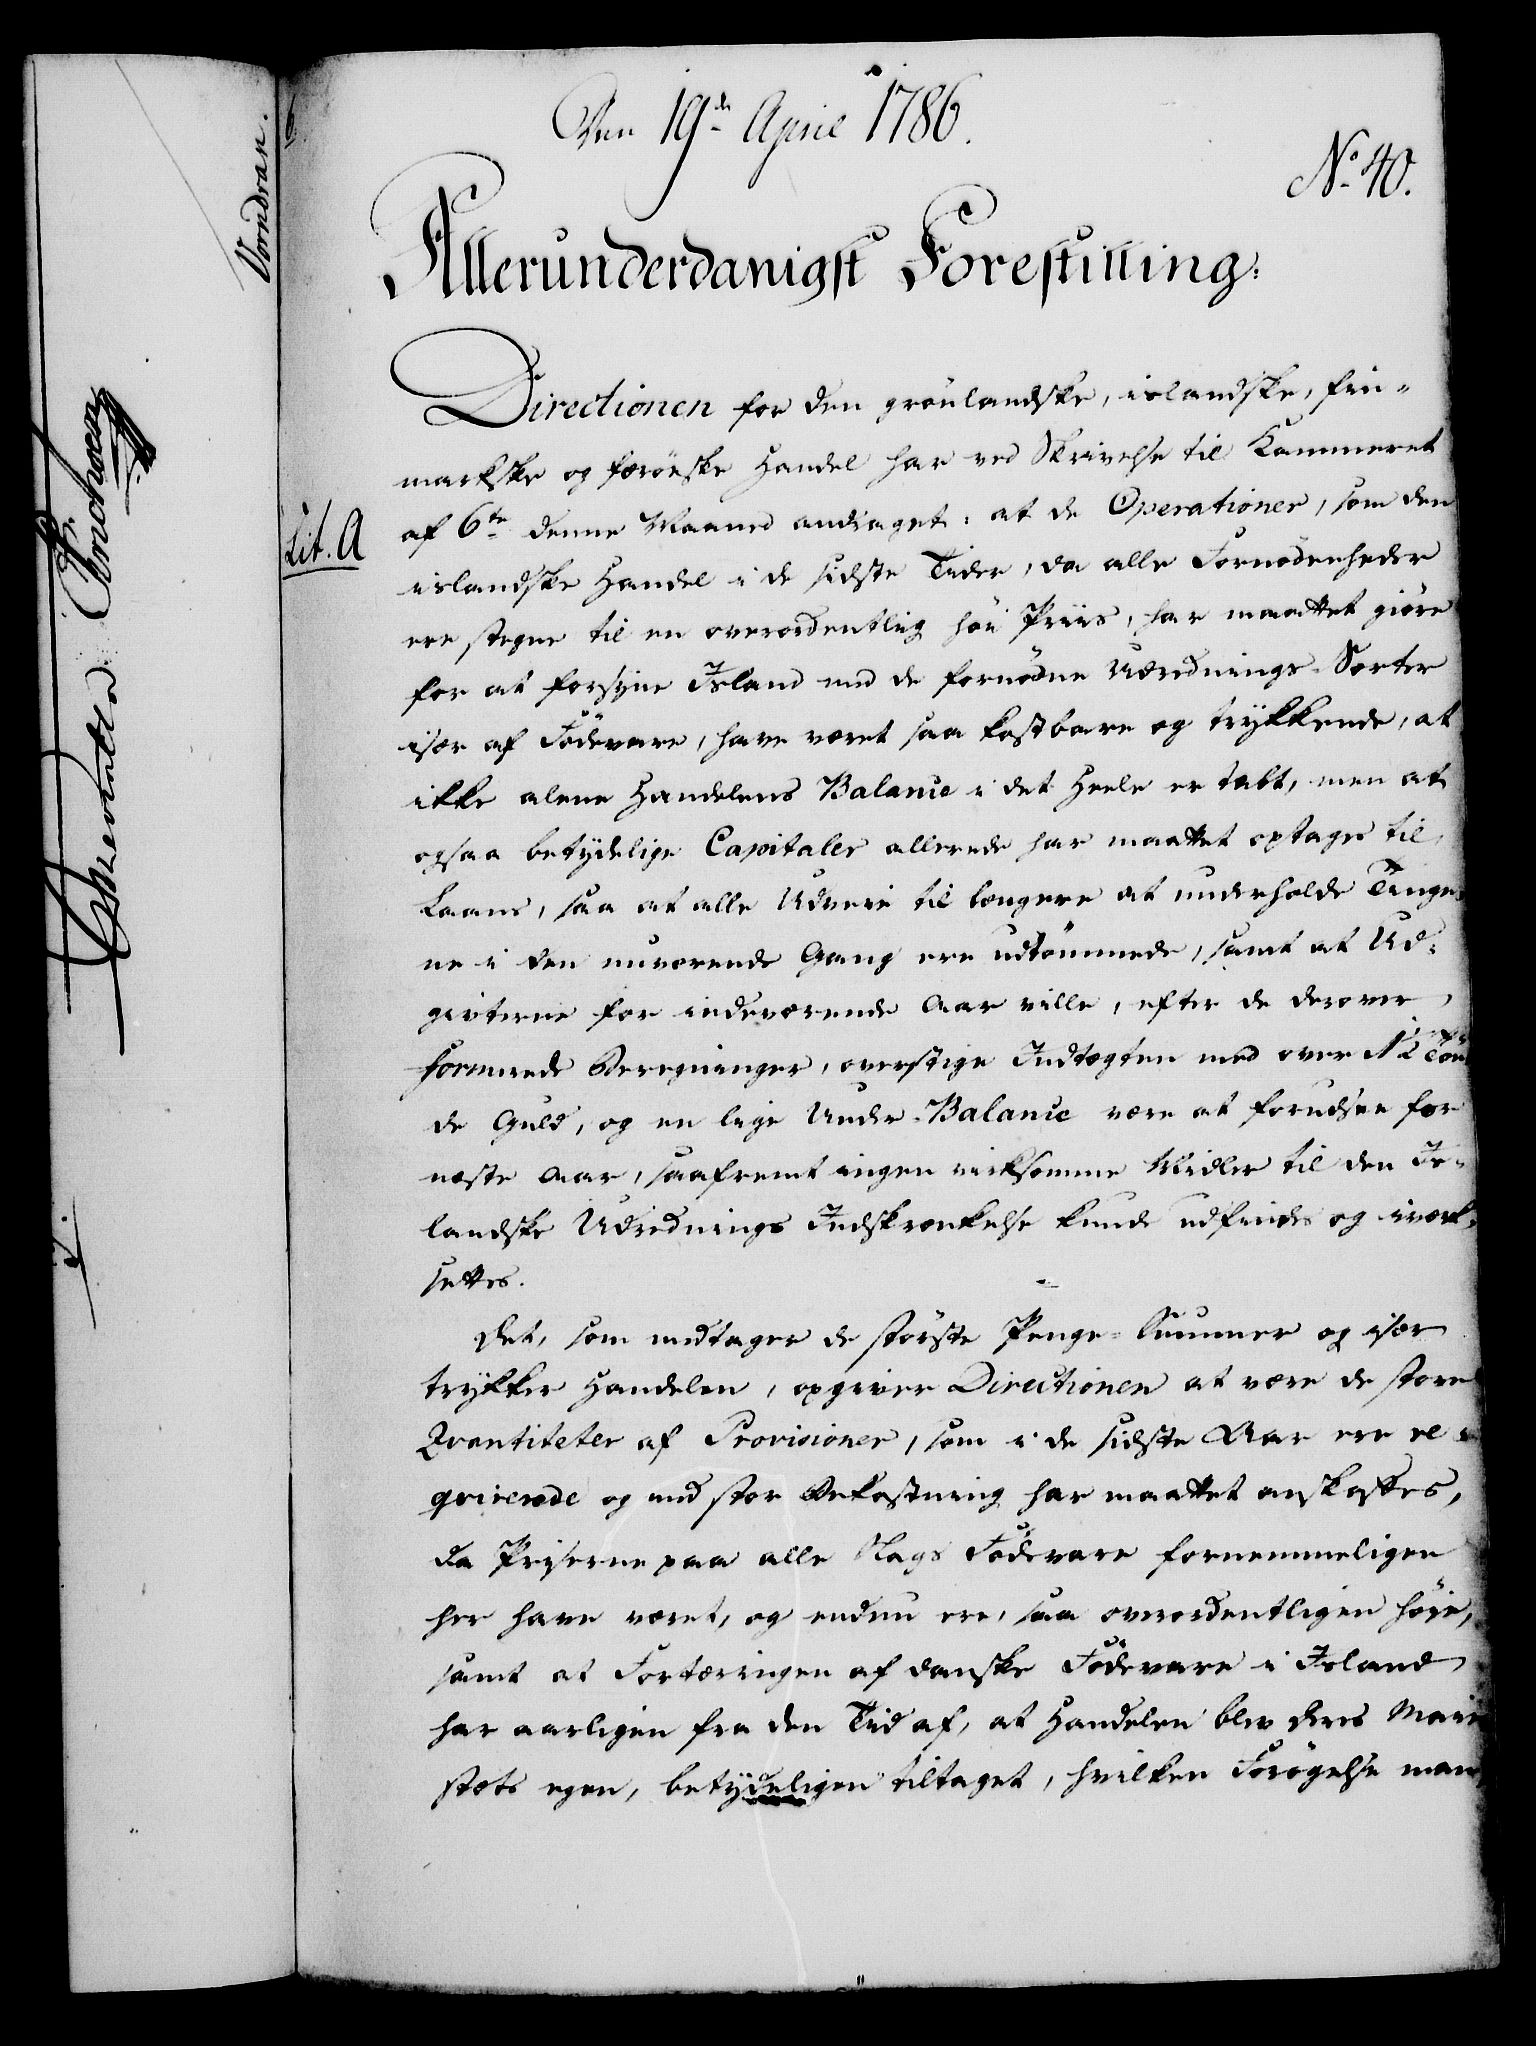 Den 19de April 1786.
No 40.
Allerunderdanigst Forestilling:
Directionen for den grönlandske, islandske, fin-
markske og færöeske Handel har ved Skrivelse til Kammeret
Lit. A
af 6te denne Maaned andraget: at de Operationer, som den
islandske Handel i de sidste Tider, da alle Fornödenheder
ere stegne til en overordentlig höi Priis, har maattet giöre
for at forsyne Island med de fornödne Udrednings-Sorter
især af Födevare, have været saa kostbare og trykkende, at
ikke alene Handelens Balance i det Heele er tabt, men at
ogsaa betydelige Capitaler allerede har maattet optages til
Laans, saa at alle Udveie til længere at underholde Tinge-
ne i den nuværende Gang ere udtömmede, samt at Ud-
givterne for indeværende Aar ville, efter de derover
formerede Beregninger, overstige Indtægten med over 1½ Tön
de Guld, og en lige Under-Balance være at forudsee for
næste Aar, saafremt ingen virksomme Midler til den Is-
landske Udrednings Indskrænkelse kunde udfindes og iværk-
settes.
Det, som medtager de störste Penge-Summer og især
trykker Handelen, opgiver Directionen at være de store
Qvantiteter af Provisioner, som i de sidste Aar ere re-
qvirerede og med stor Bekostning har maattet anskaffes,
da Priserne paa alle Slags Födevare fornemmeligen
her have været, og endnu ere, saa overordentligen höie,
samt at Fortæringen af danske Födevare i Island
har aarligen fra den Tid af, at Handelen blev Deres Maie
stæts egen, betydeligen tiltaget, hvilken Forögelse man
Vorndran.